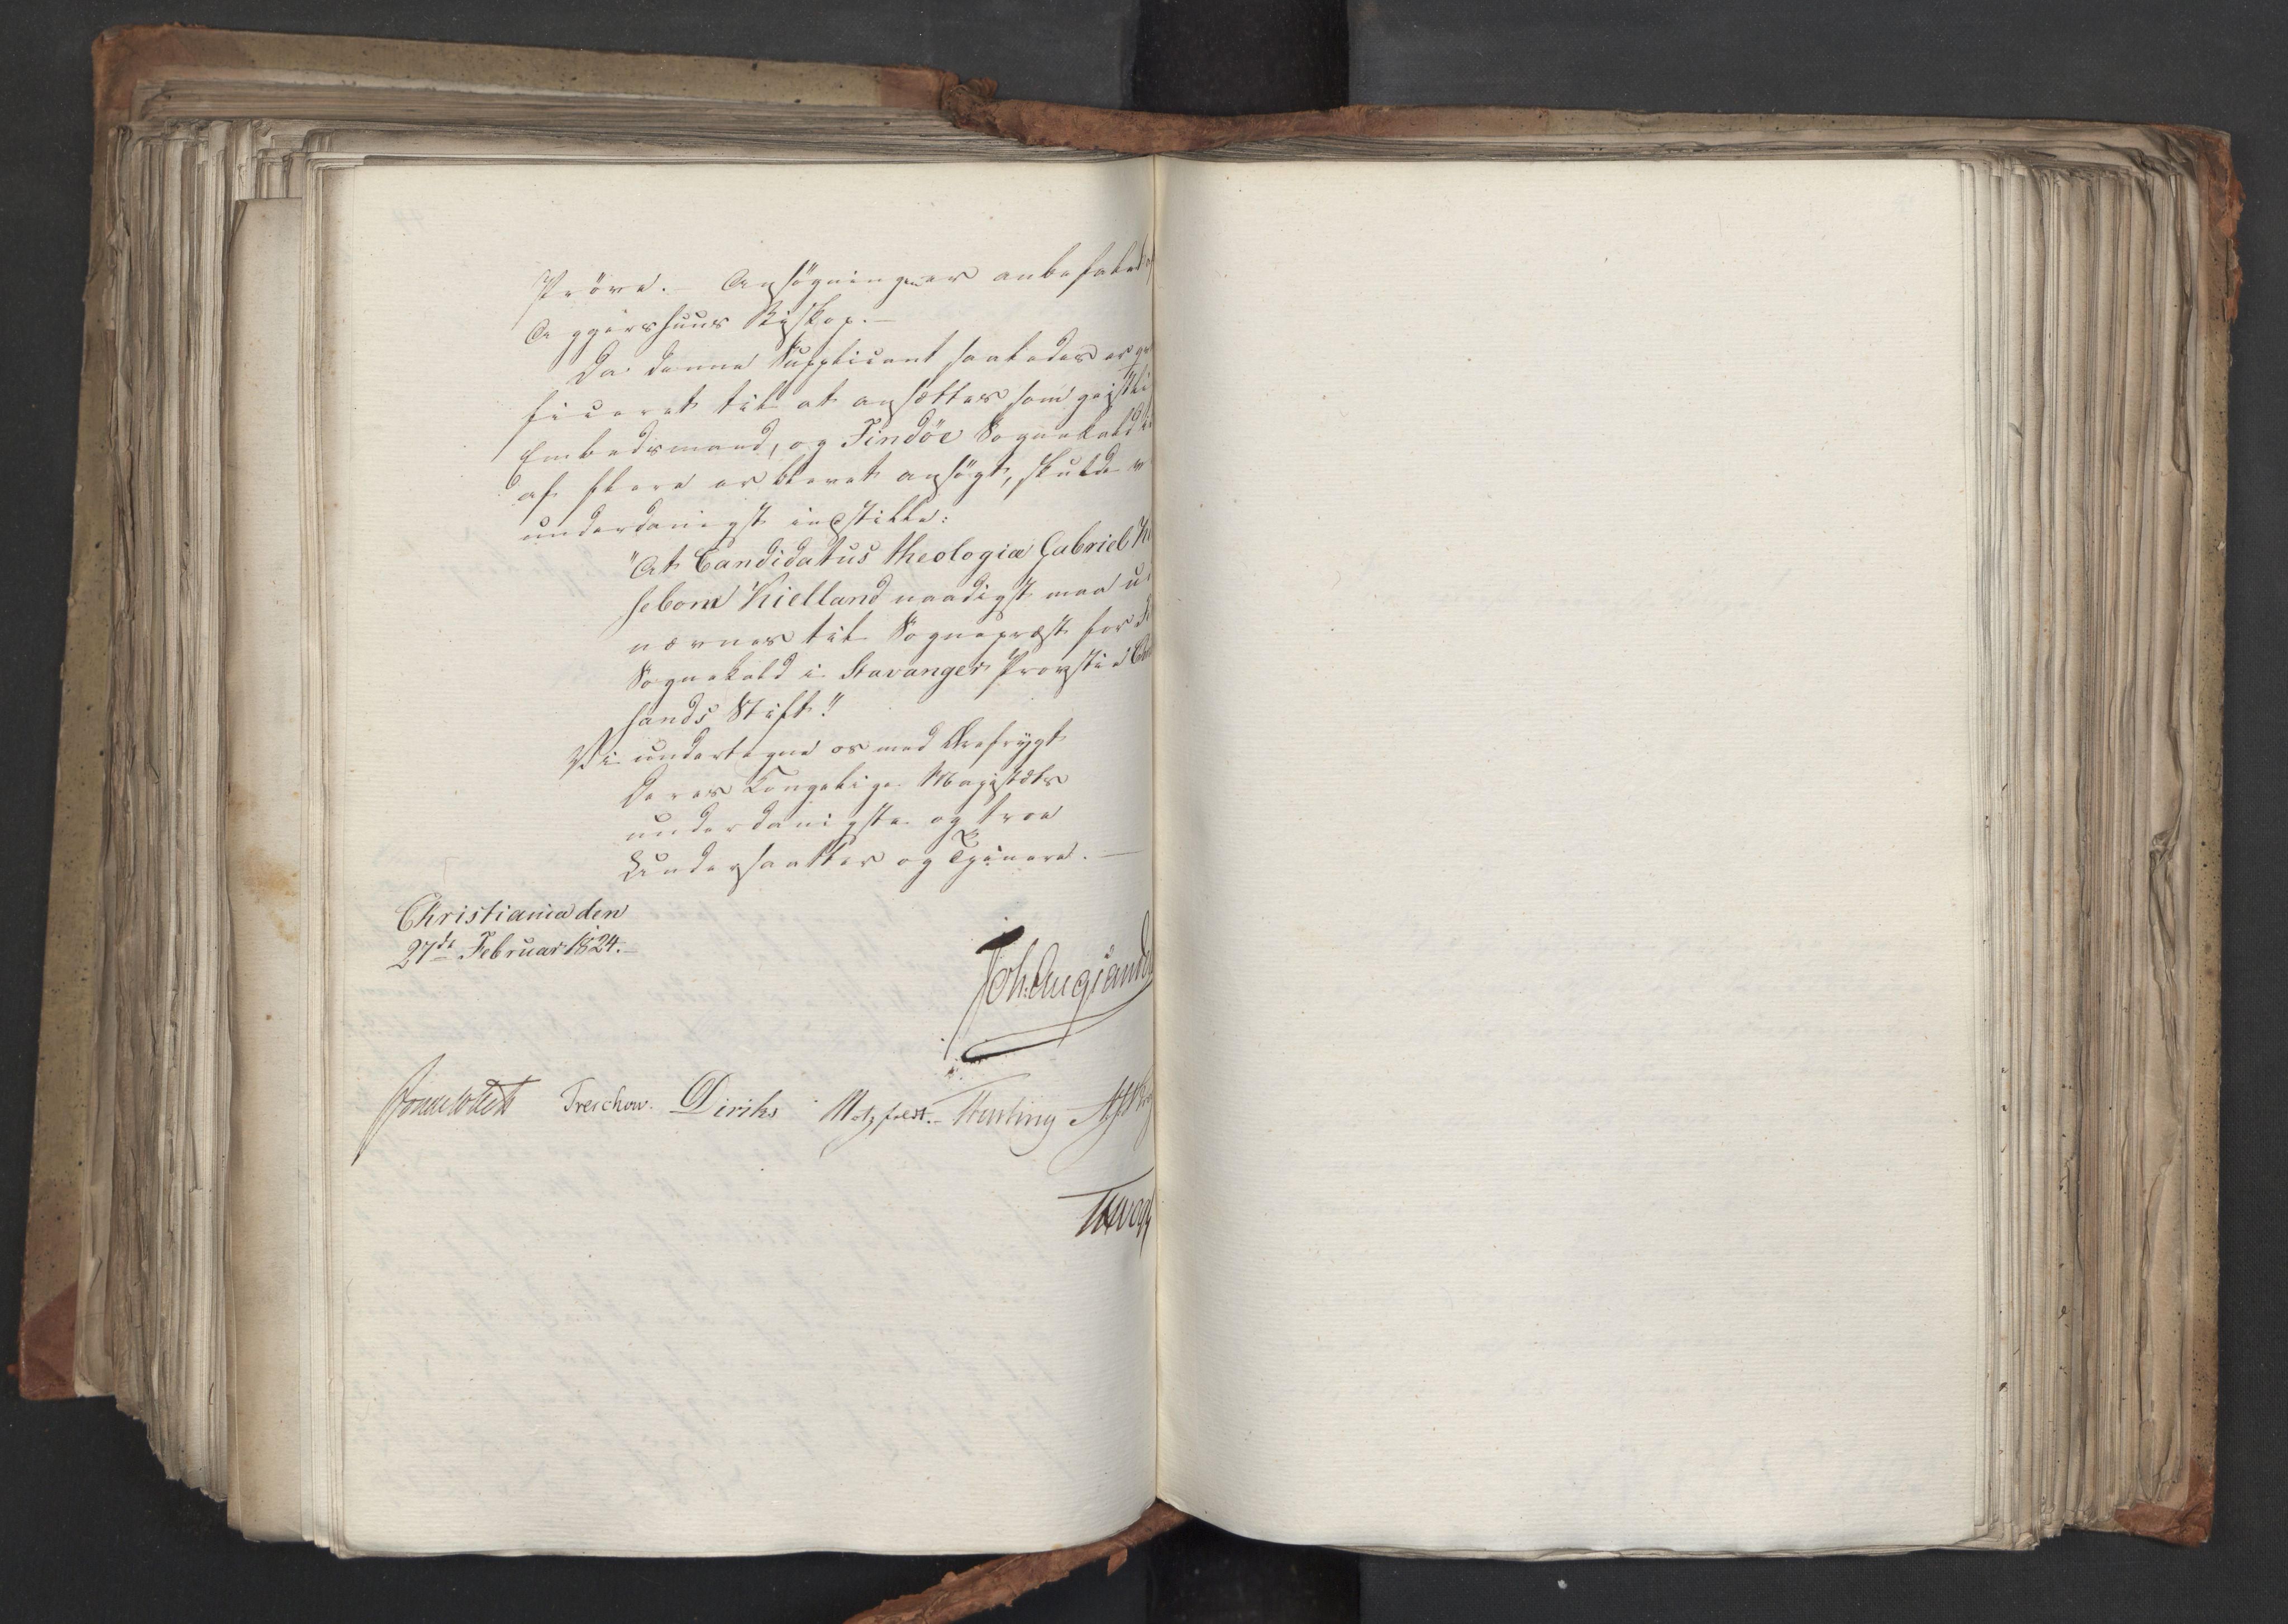 Prøve. – Ansøgningen er anbefalet af
Aggershuus Biskop. –
Da denne Supplicant saaledes er
ficeret til at ansættes som geistli
Embedsmand, og Findöe Sognekald
af flere er blevet ansøgt, skulde
underdanigst indstille:
"At Candidatus theologiæ Gabriel Ki
sebom Kielland naadigst maa u
nævnes til Sognepræst for Fi
Sognekald i Stavanger Provsti
sands Stift."
Vi undertegne os med Ærefrygt
Deres Kongelige Majestæts
underdanigste og troe
Undersaatter og Tjenere. –
Christiania den
27de Februar 1824. –
Joh. Aug Sande
Sommerfeldt Treschow. Diriks Motzfeldt. –